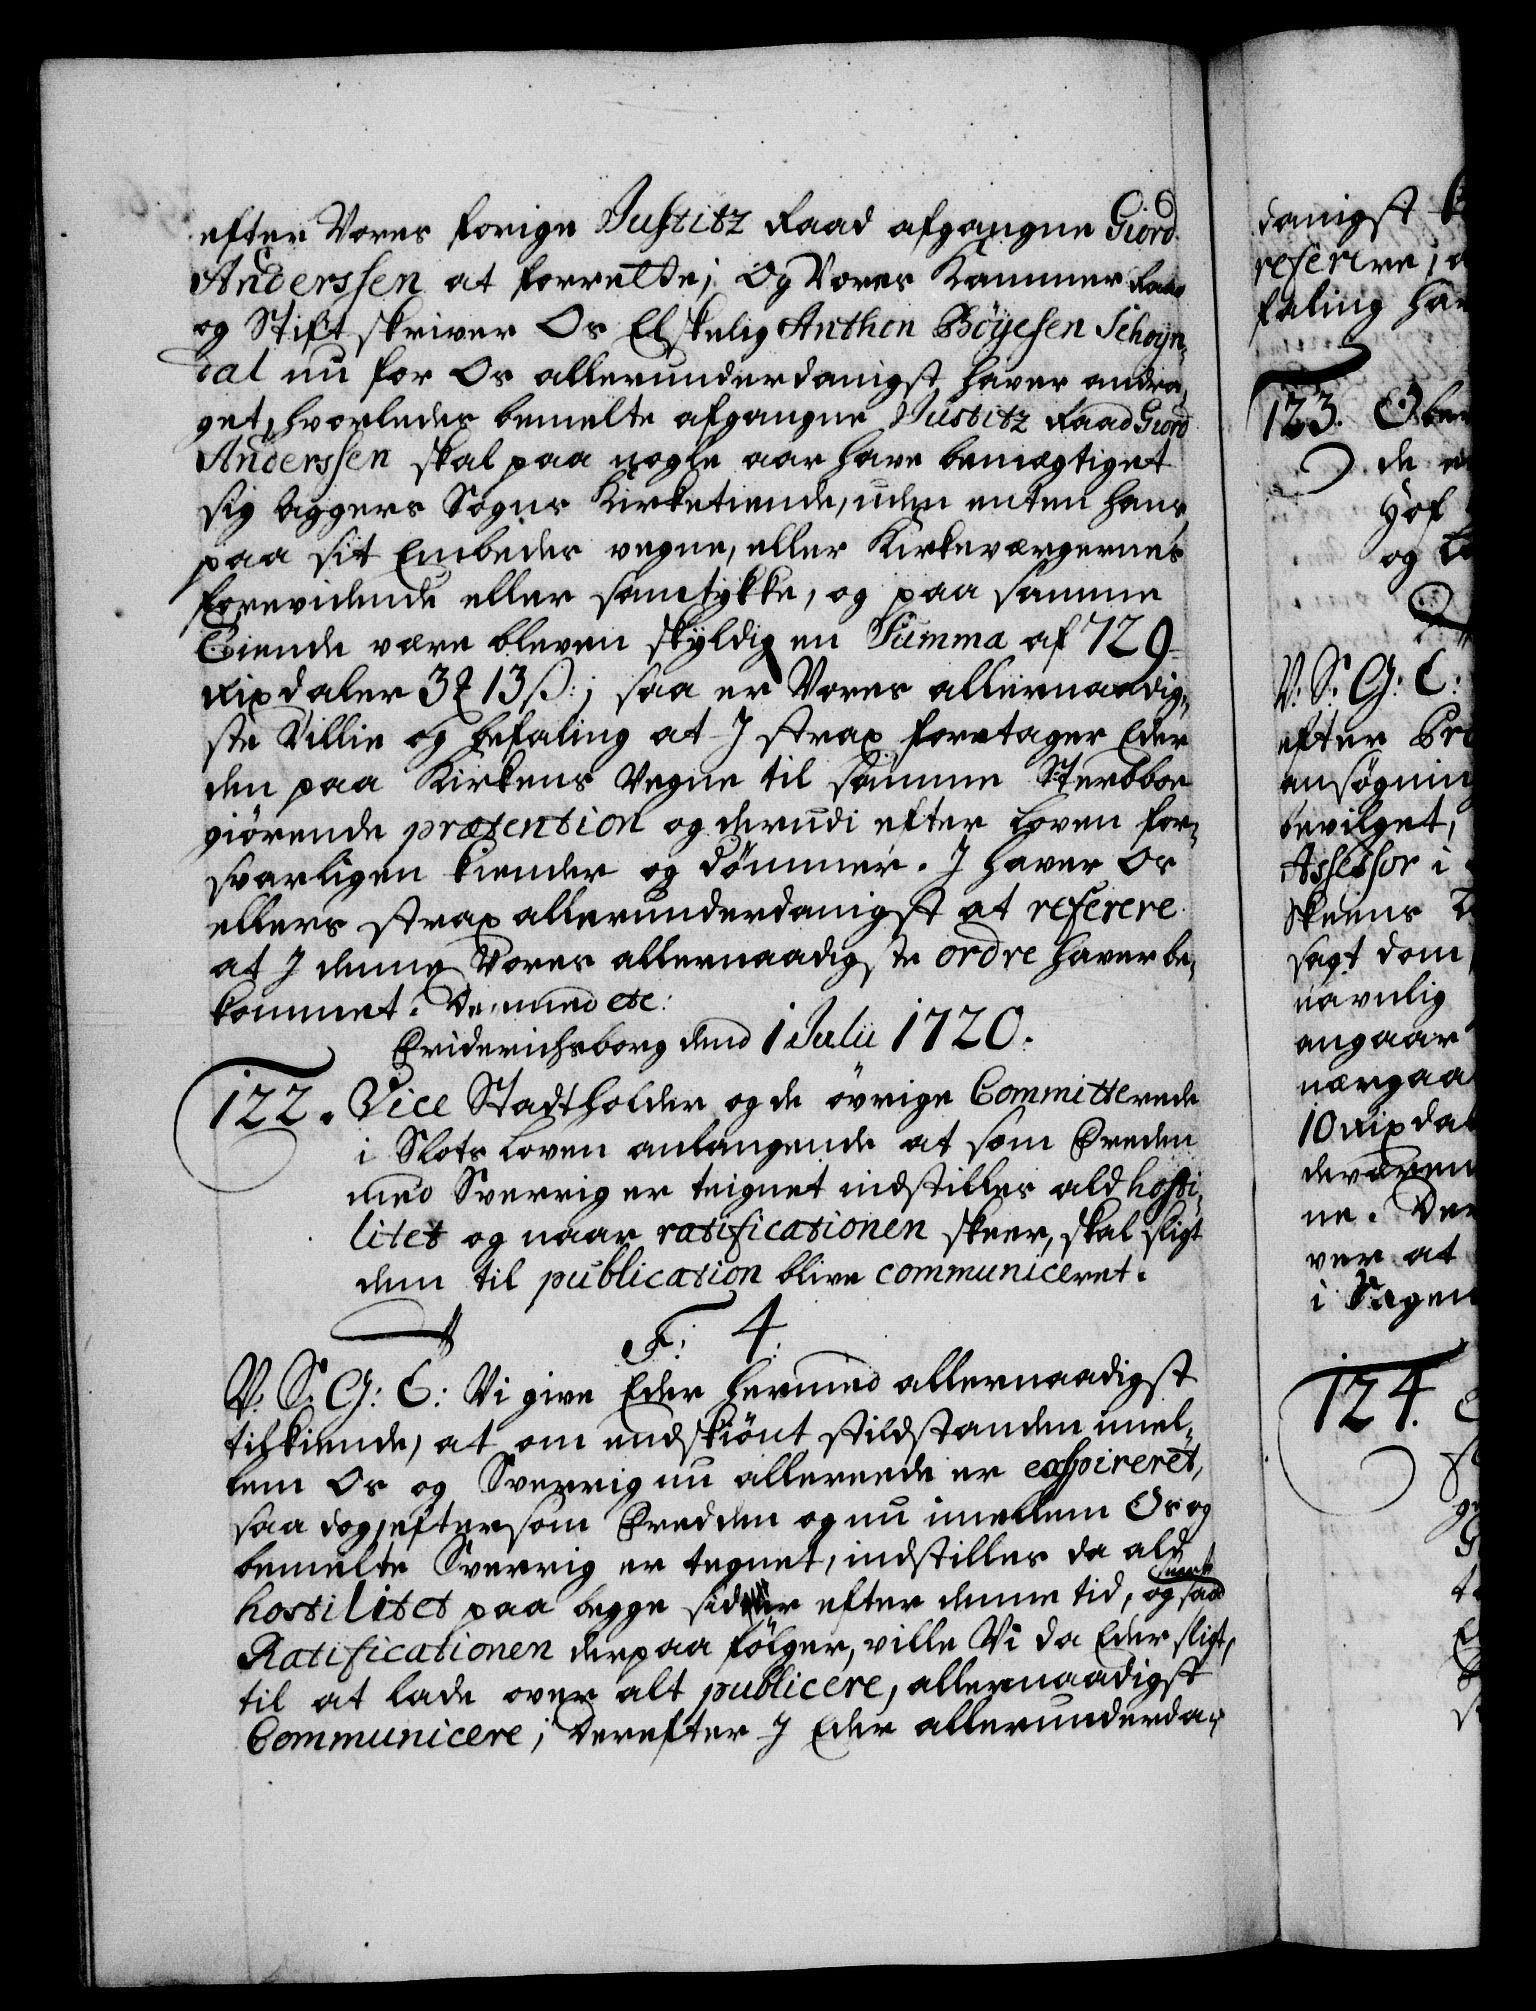 efter Vores forige Justitz Raad afgangne Giord
Anderssen at forrette; Og Vores Kammer Raad
og Stiftskriver Os Elskelig Anthon Böyesen Schøyn„
dal nu for Os allerunderdanigst haver andra„
get, hvorledes bemelte afgangne Justitz Raad Giord
Anderssen skal paa nogle aar have bemægtiget
sig baggers Sogns Kirketiende, uden enten hans
paa sit Embedes vegne, eller Kirkeværgernes
forevidende eller samtykke, og paa samme
Tiende være bleven skÿldig en Summa af 729
Rixdaler 3 ℔ 13 ß:; saa er Vores allernaadig„
ste Villie og befaling at I strax foretager Eder
den paa Kirkens Vegne til samme Sterbboe
giörende prætention og derudi efter Loven for„
svarligen kiender og dömmer. I haver Os
ellers strax allerunderdanigst at referere
at I denne Vores allernaadigste ordre haver be„
kommet. Dermed etc:
Friderichsborg dend 1 Julii 1720.
122. Vice Stadtholder og de övrige Committerede
i Slots Loven anlangende at som Freden
med Sverrig er teignet indstilles ald hosti„
litet og naar ratificationen skeer, skal sligt
dem til publication blive communiceret.
F: 4.
V: S: G: T: Vi give Eder hermed allernaadigst
tilkiende, at om endskiönt stildstanden imel„
lem Os og Sverrig nu allereede er exspireret,
saa dog, eftersom Fredden og nu imellem Os og
bemelte Sverrig er tegnet, indstilles da ald
hostilitet paa begge sider efter denne tid, og saa snart
Ratificationen derpaa fölger, ville Vi da Eder sligt,
til at lade over alt publicere, allernaadigst
Communicere; Derefter I Eder allerunderda„
danigst
referere; 
faling
123.
de
Hof
og
V: S: G: T:
efter
ansögning
bevilget,
Assessor i
Skeens
sagt dom
navnlig
angaar
nærgaa
10 Rixdal
deværen
ne.
ver at
i Sagen
124.